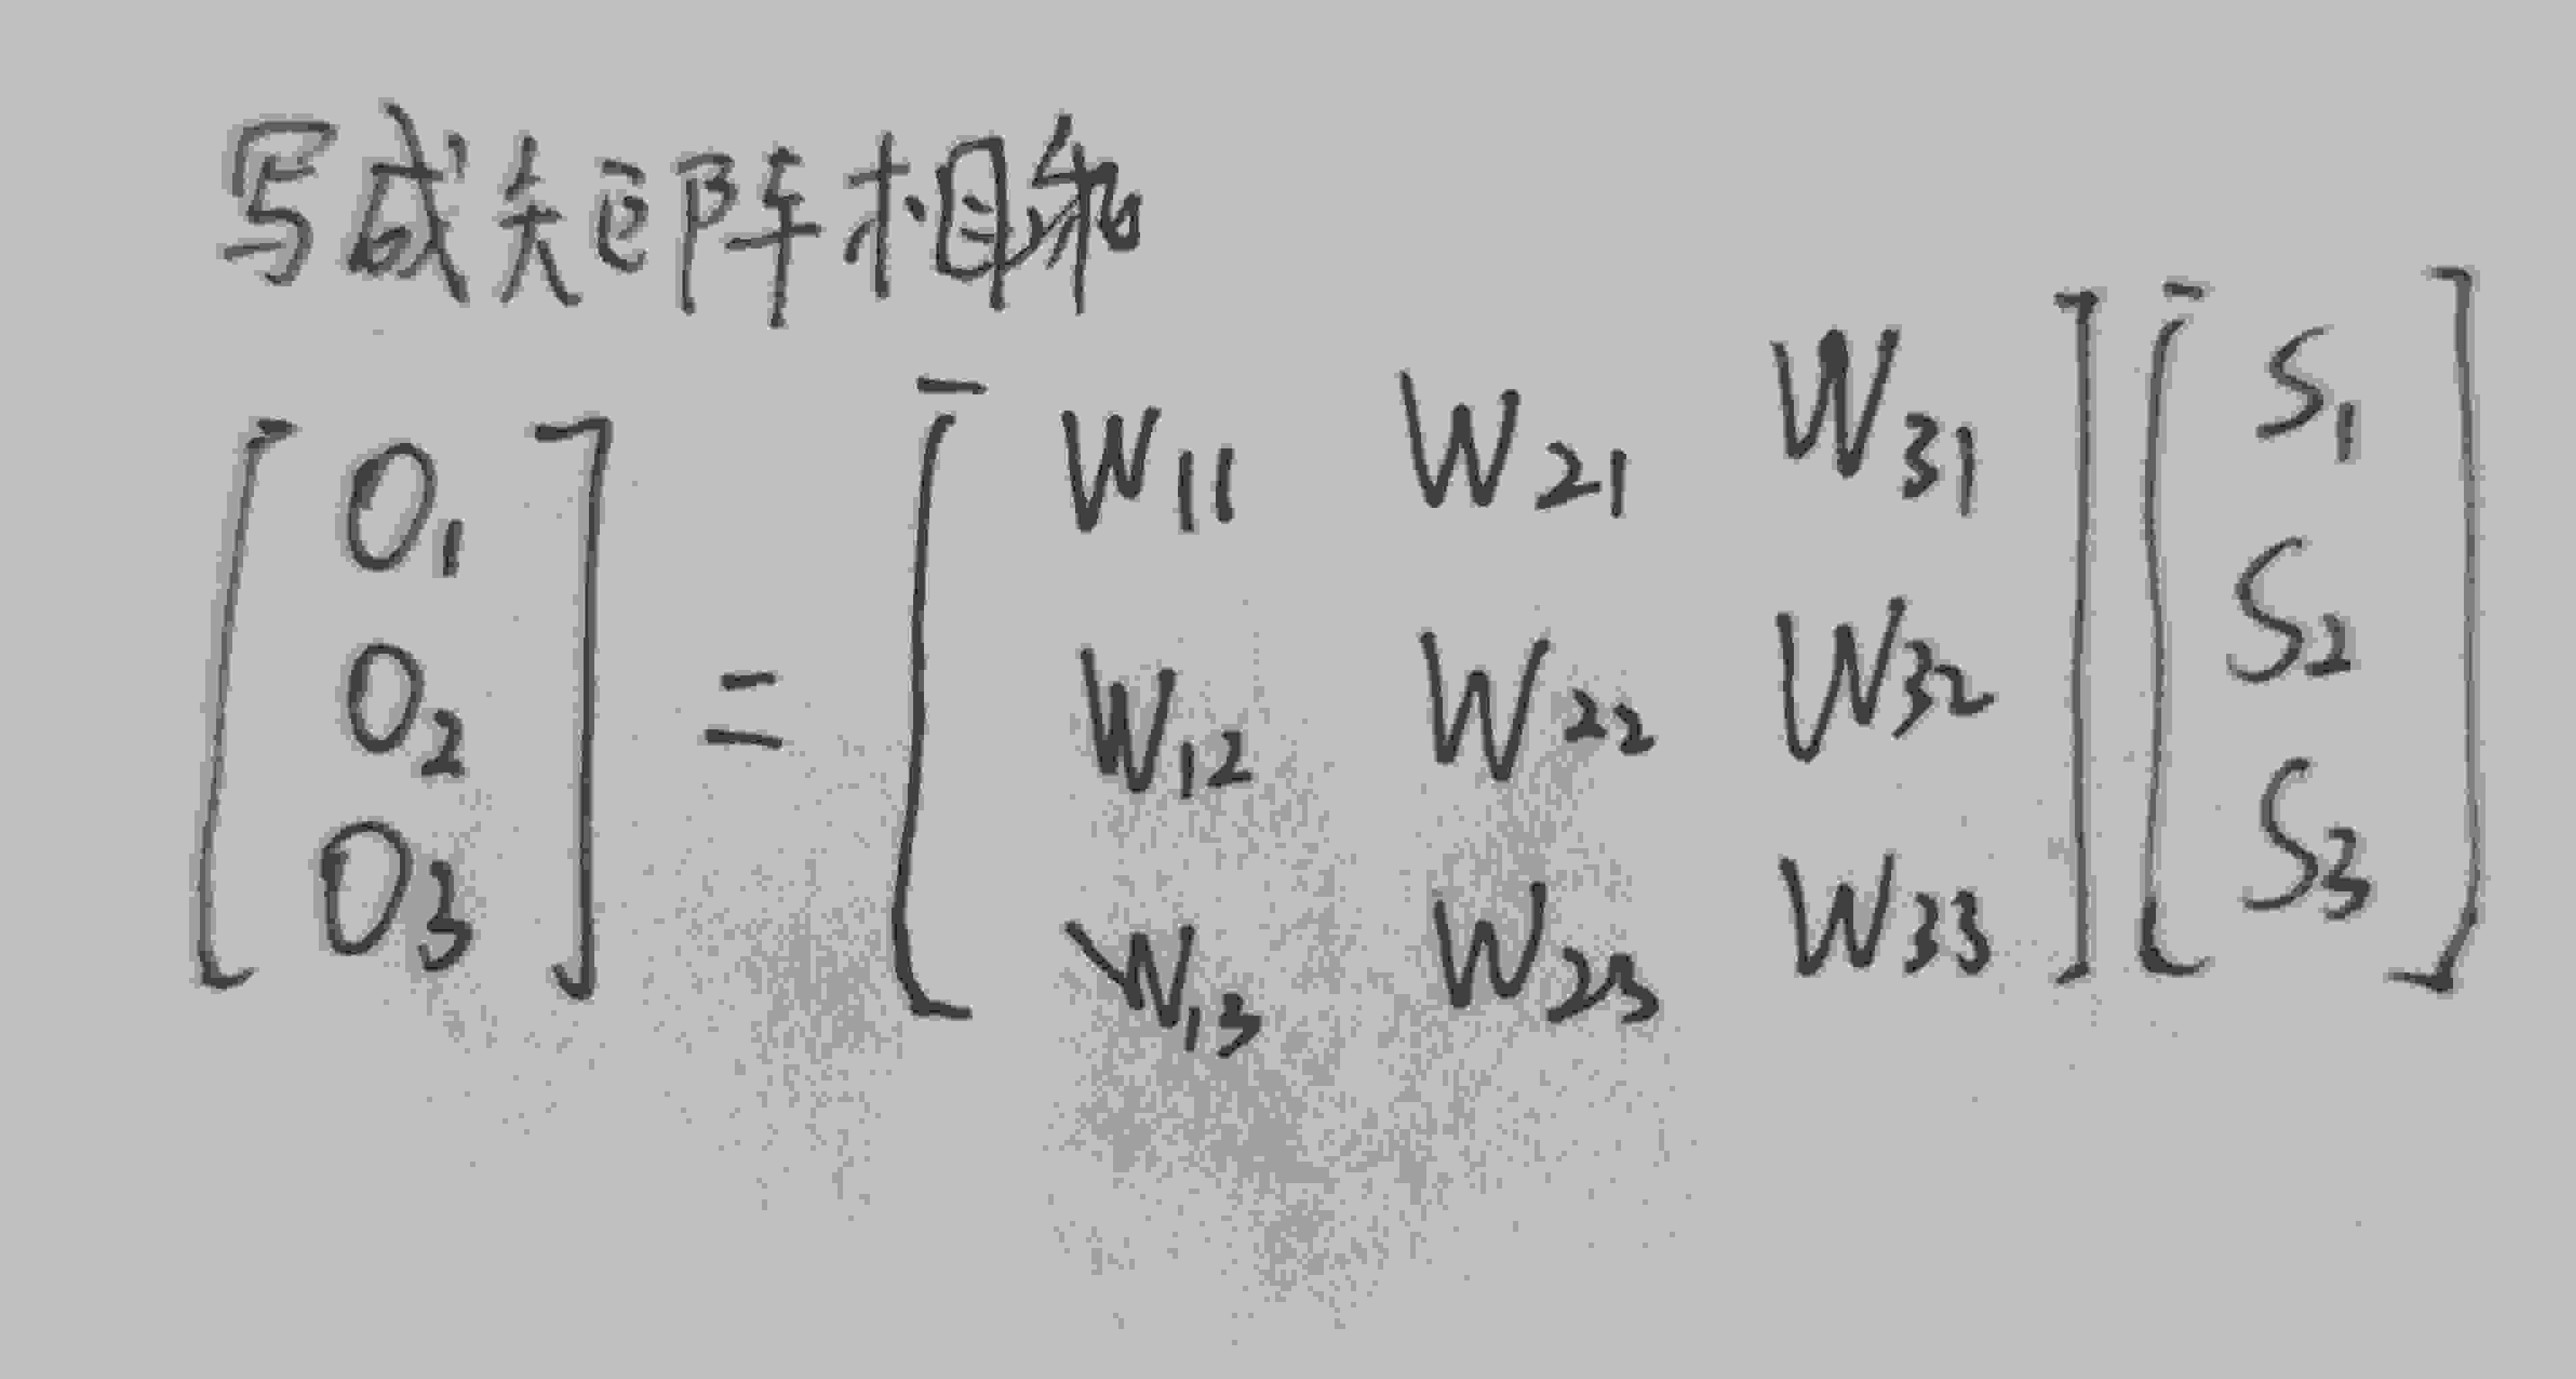 写成矩阵相乘
[O₁ O₂ O₃] = [W₁₁ W₂₁ W₃₁ [S₁
W₁₂ W₂₂ W₃₂ S₂
W₁₃ W₂₃ W₃₃] S₃]